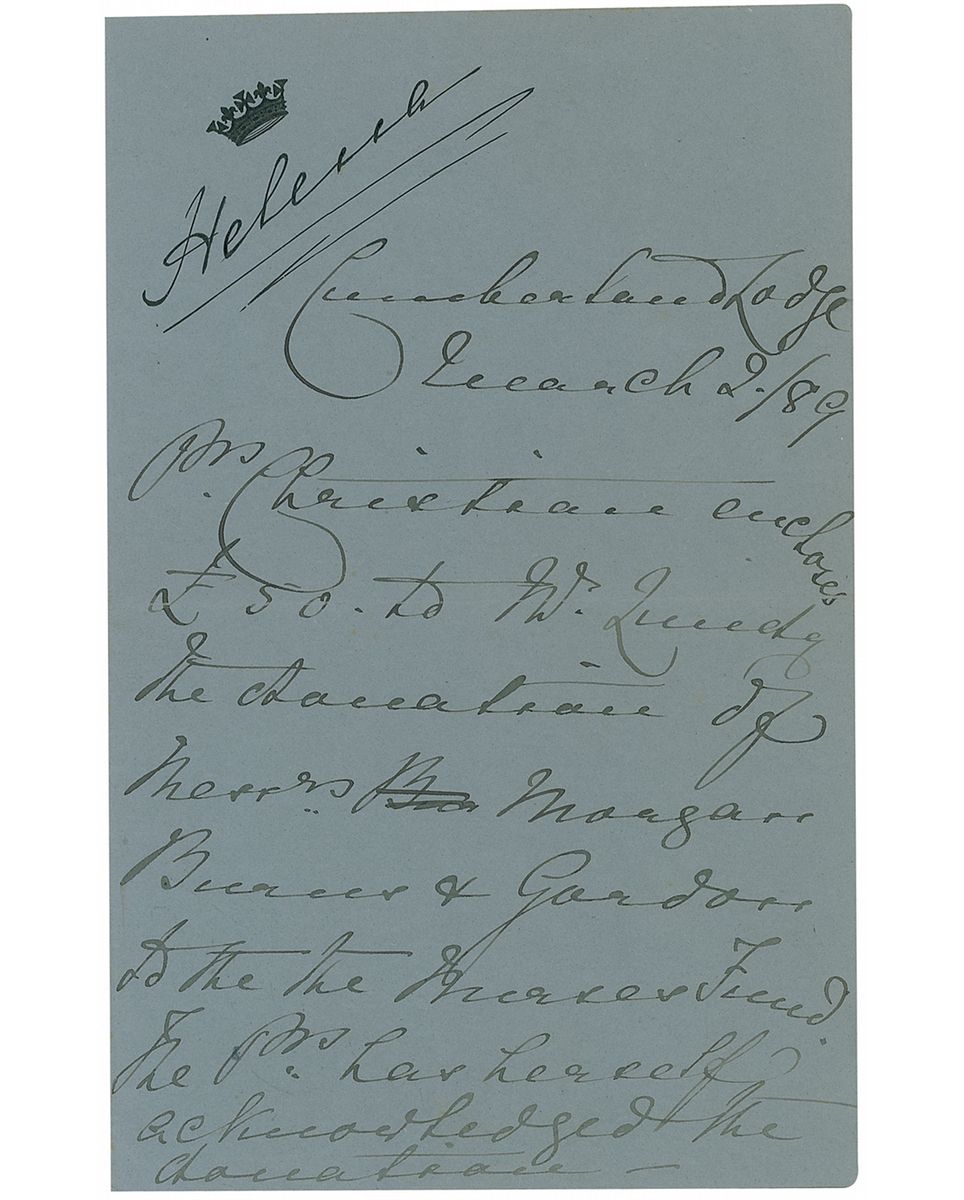 Helena
Cumberland Lodge
March 2./89
Prs. Christian encloses
£50. to Mr. Lundy
the donation of
Messrs Morgan
Burns & Gordon
to the the Nurses Fund.
The Prs. has herself
acknowledged the
donation –